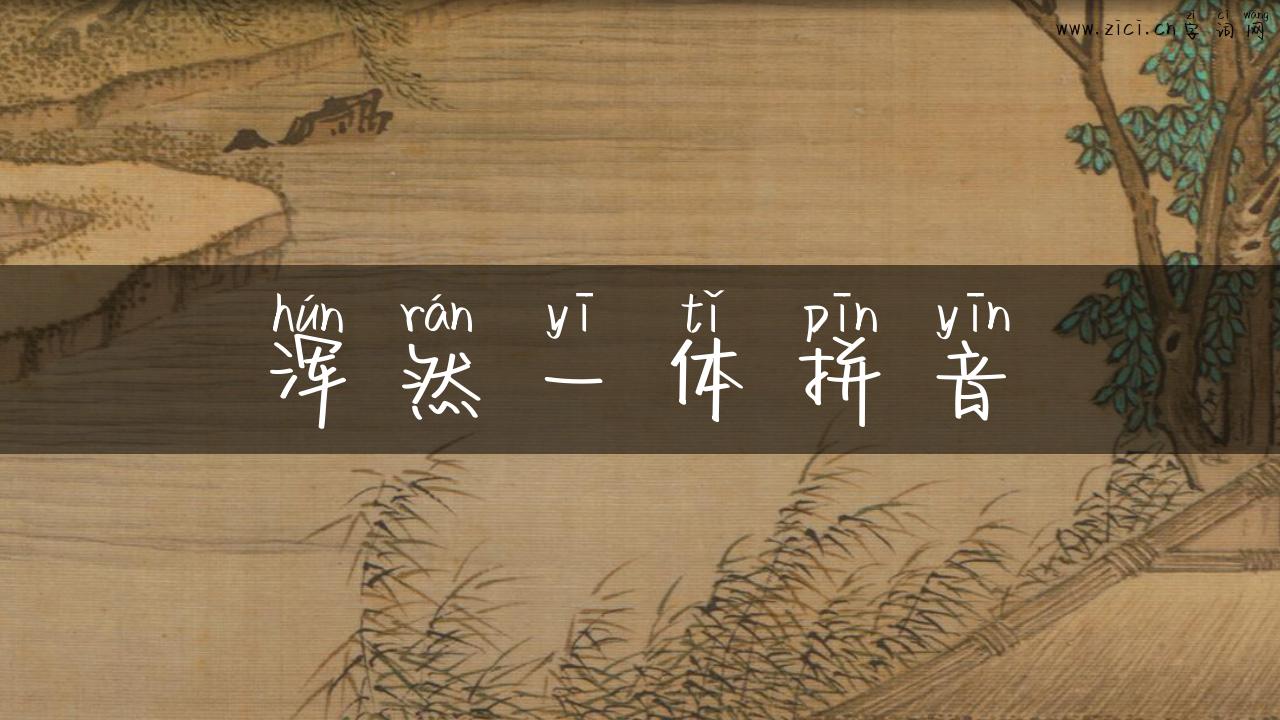 zì cí wǎng
www.zici.cn 字词网
hún rán yī tǐ pīn yīn
浑然一体拼音